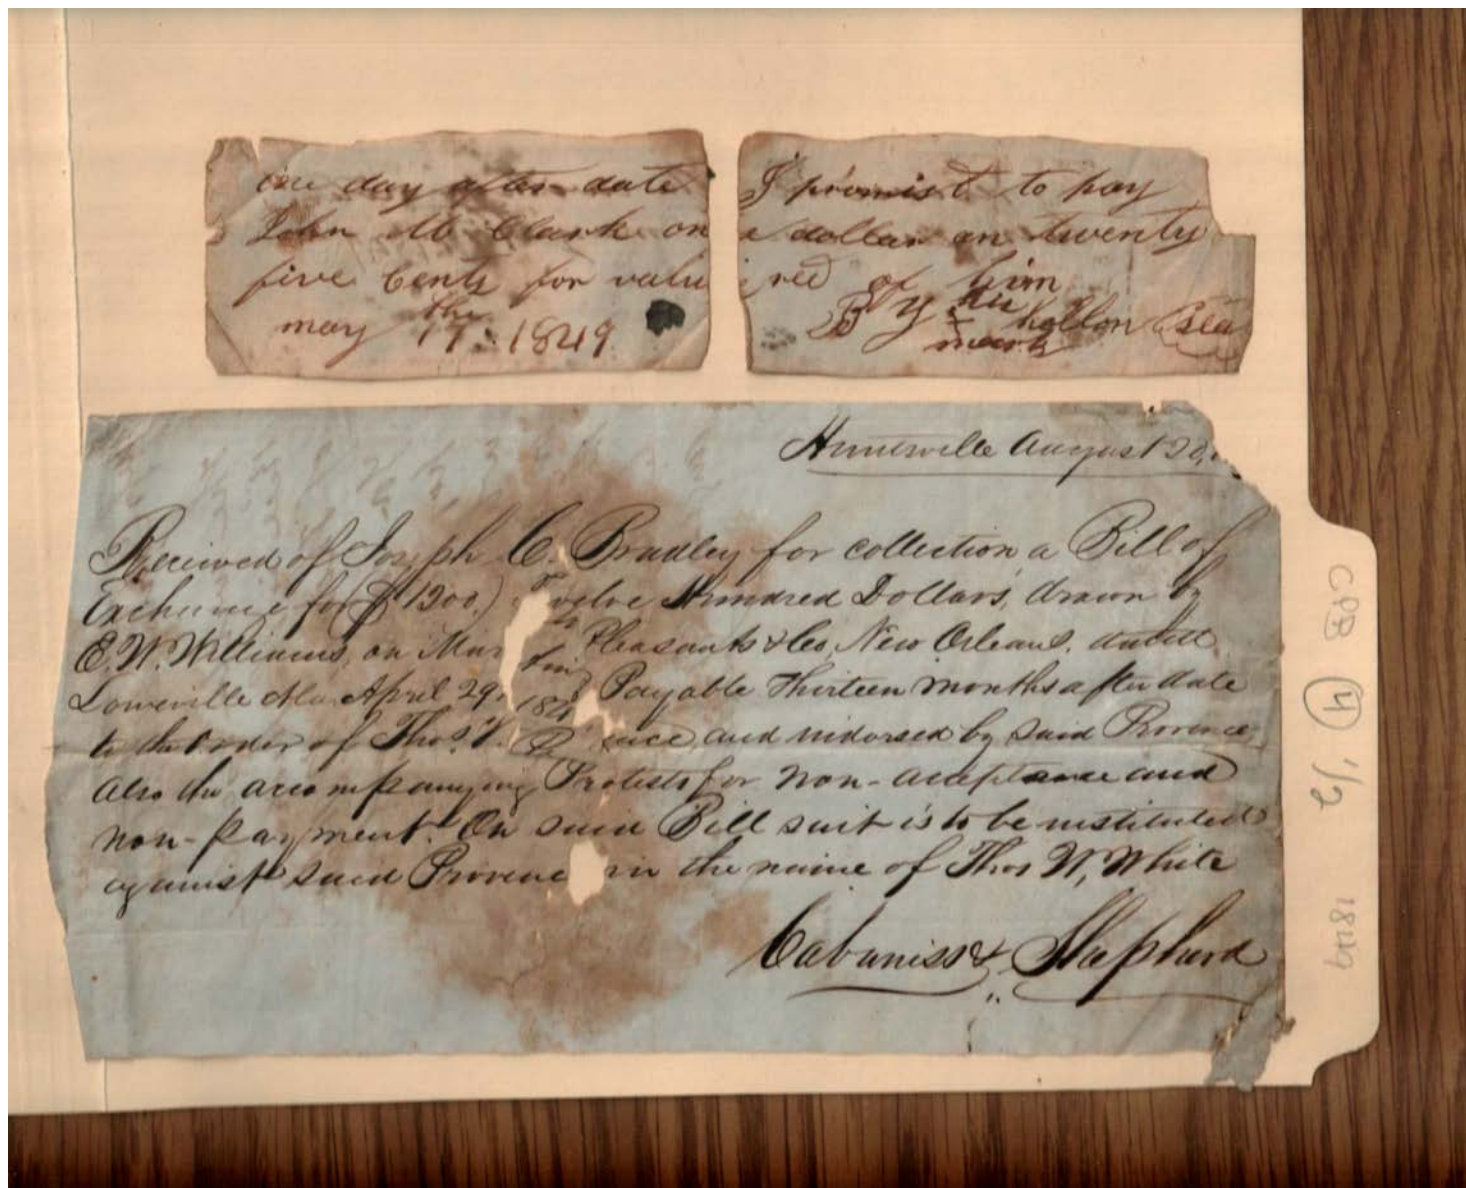 one day after date I promis t to pay
John M Clark on e dollar an twenty
five Cents for valu red of him
may the 17. 1849 By his hollon Sea
mark
Huntsville August 20,
Received of Joseph C. Bradley for collection a Bill of
Exchange for ($1200.) Twelve Hundred Dollars, drawn by
E. W. Williams, on Mar tin Pleasants & Co, New Orleans. dated
Louisville Ala, April 29, 184 Payable Thirteen months after date
to the order of Thos. P ence, and indorsed by said Provence
also the accompanying Protests for non-acceptance and
non-payment. On said Bill suit is to be instituted
against said Provenc in the name of Thos W, White
Cabaniss & Shepherd
CPB (4) 1/2 1849